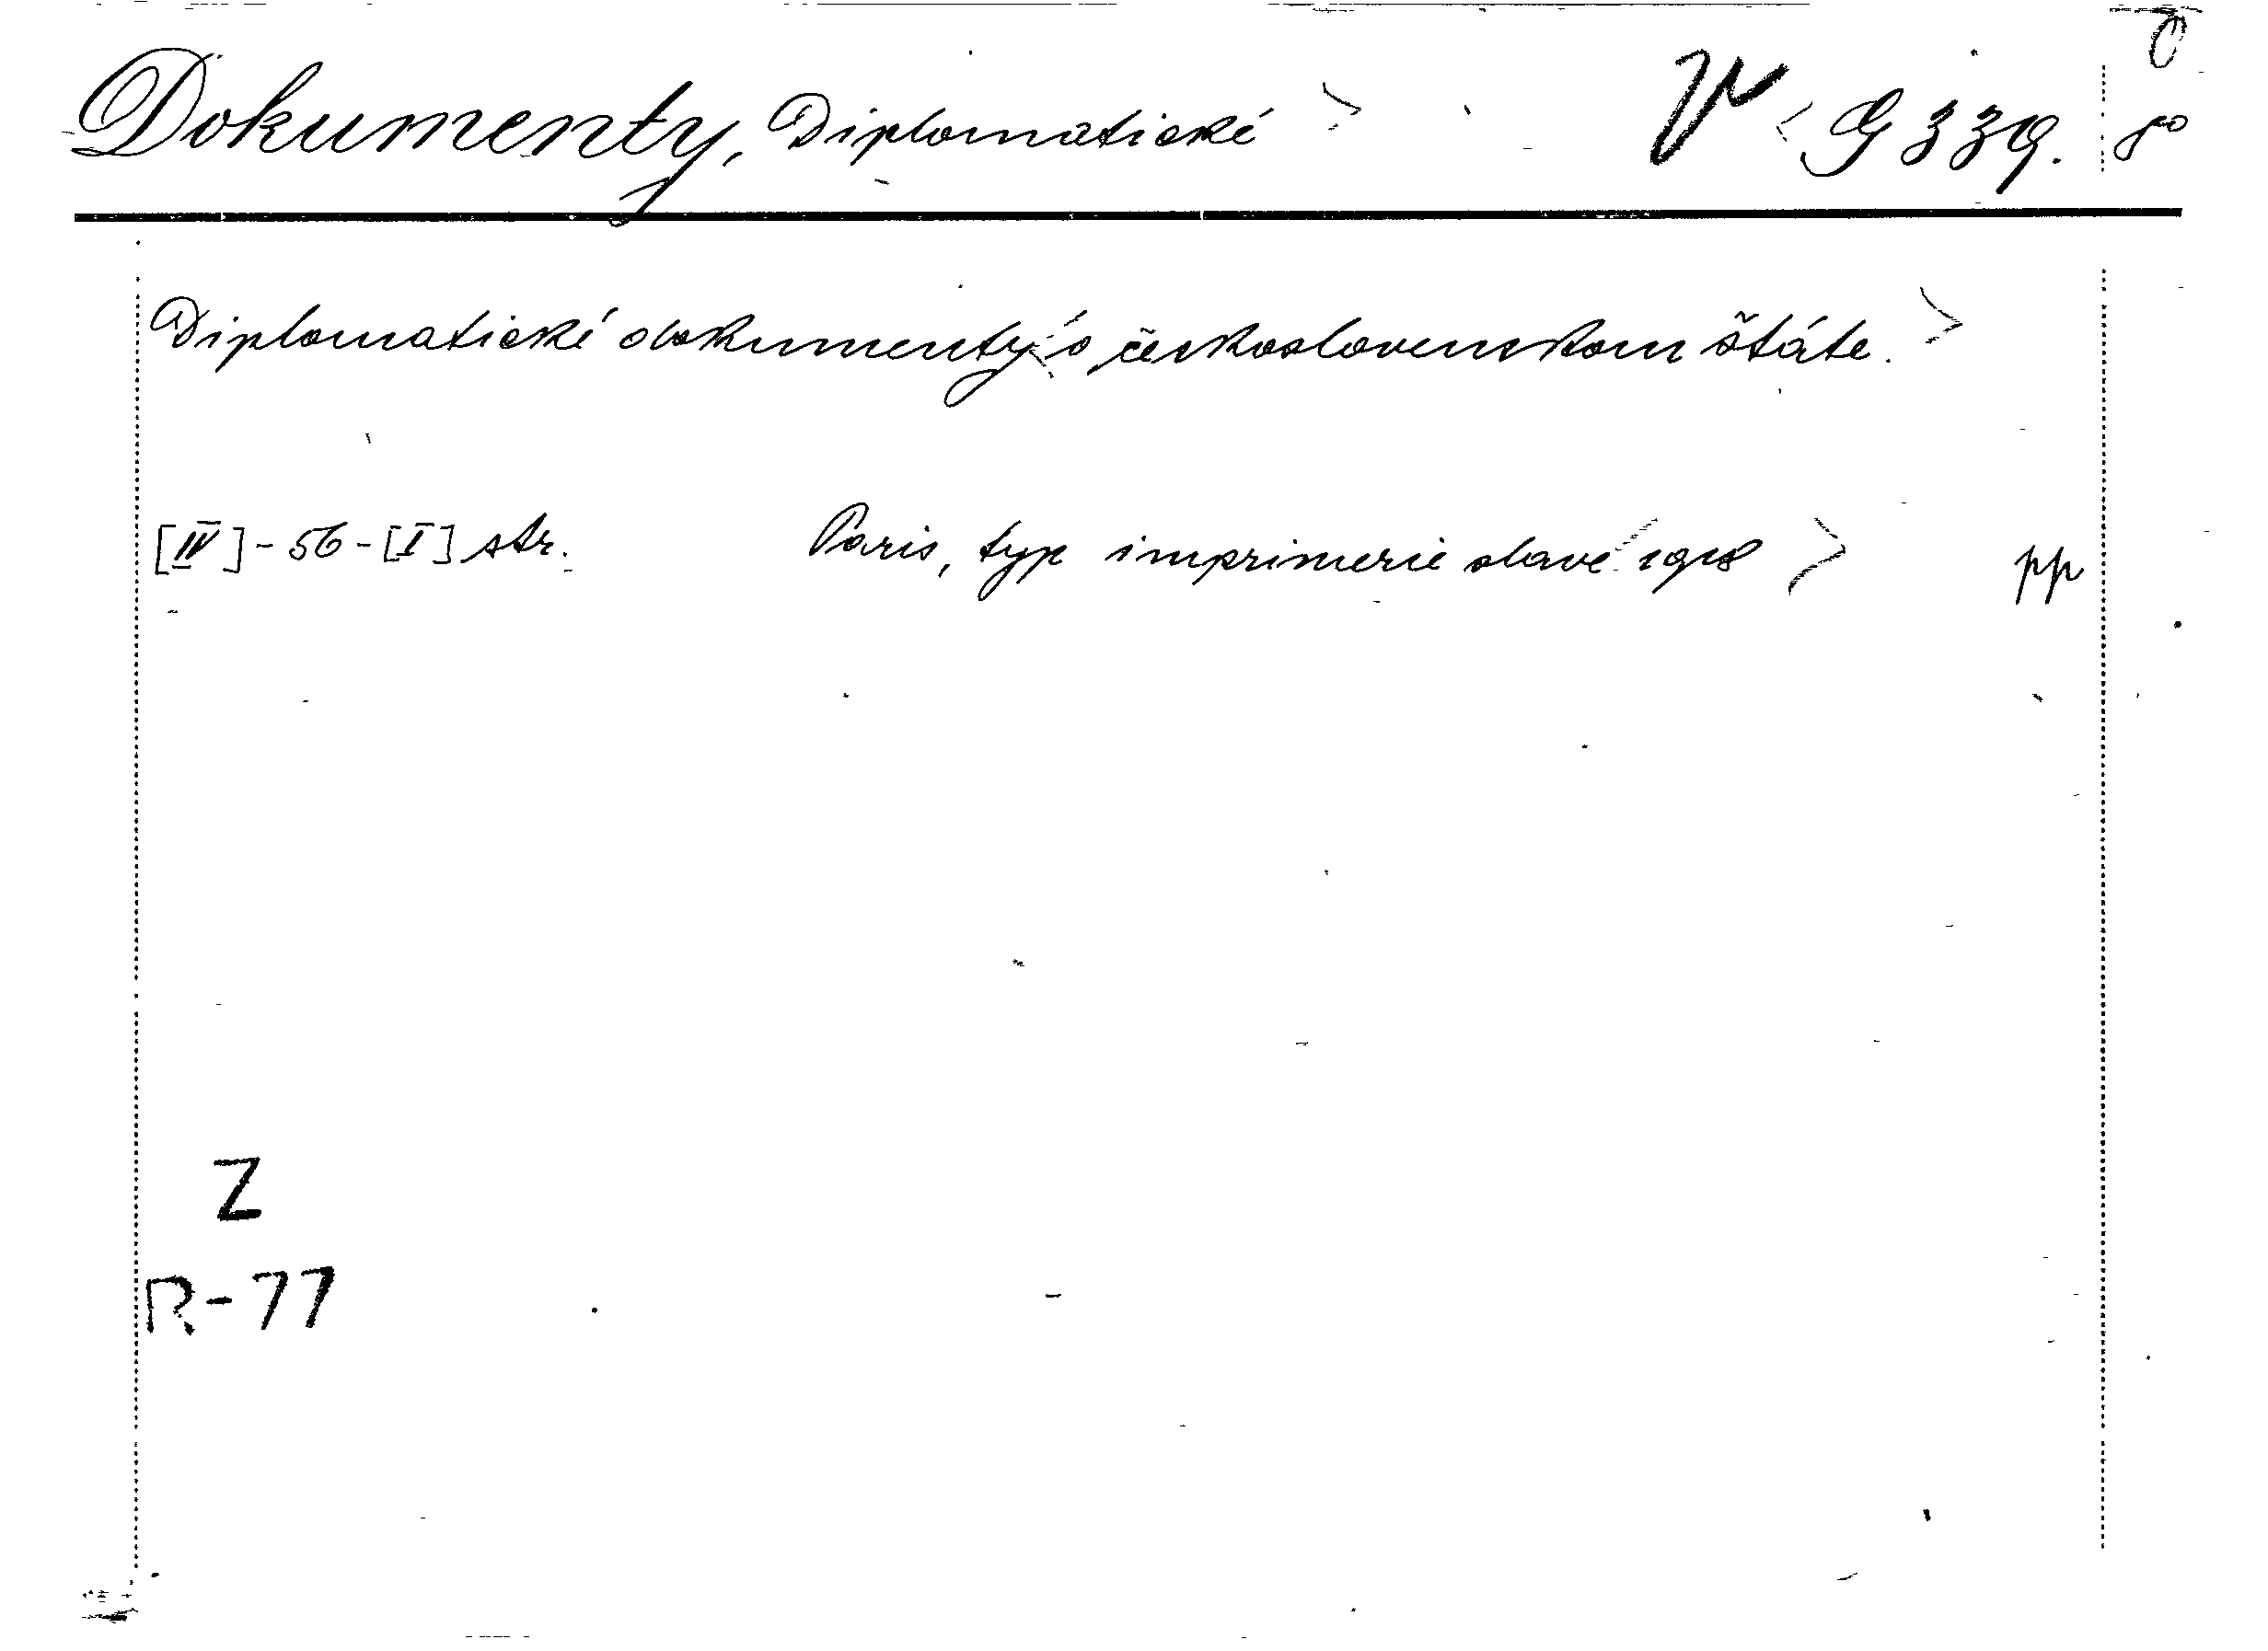 Dokumenty, Diplomatické V G 339. 8°
Diplomatické dokumenty o československom štáte.
[IV]-56-[I] str. Paris, typ imprimerie slave 1918 pp
Z
R-77